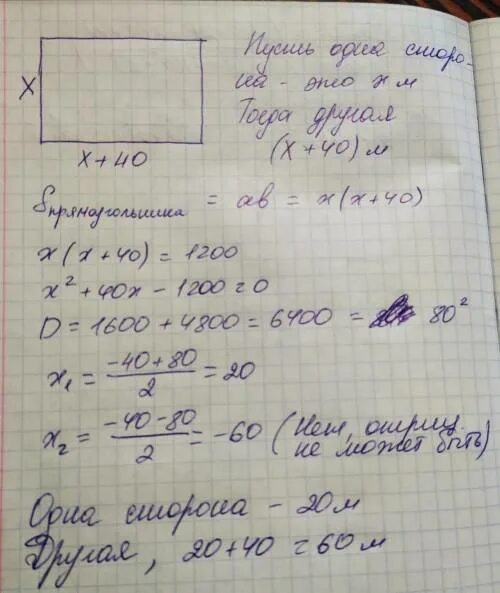 Пусть одна сторо-
на - это x м
Тогда другая
(x+40) м
x
x+40
Sпрямоугольника = ab = x(x+40)
x(x+40) = 1200
x² + 40x - 1200 = 0
D = 1600 + 4800 = 6400 = 80²
x₁ = (-40+80)/2 = 20
x₂ = (-40-80)/2 = -60 (Нет, отриц. не может быть)
Одна сторона - 20м
Другая, 20+40 = 60м